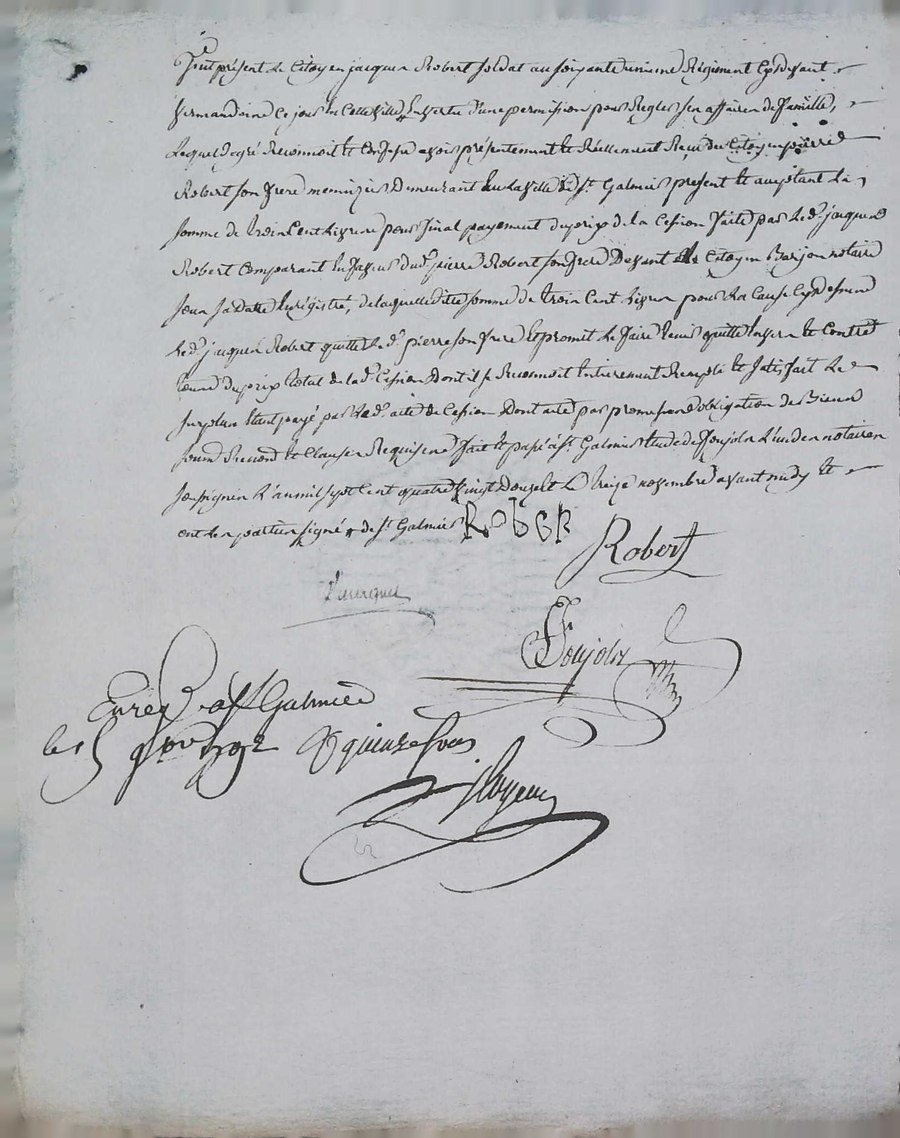 Fut présent le Citoyen jacques Robert soldat au soixante unieme Régiment Cydevant
vermandoire ce jour en cette ville, En vertu d'une permission pour Regler ses affaires de famille,
Lequel de gré Reconnoit et Confesse avoir présentement et Réellement Reçu du Citoyen pierre
Robert son frere menuizier Demeurant En la ville de St. Galmier present et acceptant La
somme de trois Cent Livres pour final payement du prix de la Cession faite par Led. jacques
Robert Comparant En faveur dud. pierre Robert son frere Devant Le Citoyen Barjon notaire
sous sa Datte Enrégistré, de laquelle ditte somme de trois Cent Livres pour La Cause Cy dessus
Led. jacques Robert quitte Led. pierre son frere Et promet Le faire tenir quitte Envers et Contre
tous du prix total de lad. Cession dont il se Reconnoit Entierement Rempli et satisfait Le
surplus Etant payé par Led. acte de Cession Dont acte par promesse obligation de Biens
soum. Renond. et Clauses Requises fait et passé à St. Galmier Etude de foujols L'un des notaires
soussignés L'an mil sept Cent quatre vingt Douze Le treize novembre avant midy et
ont Les parties signé de St. Galmier RobeR
Robert
foujols
Enreg. a St Galmier
les 9bre 1792 quinze sous